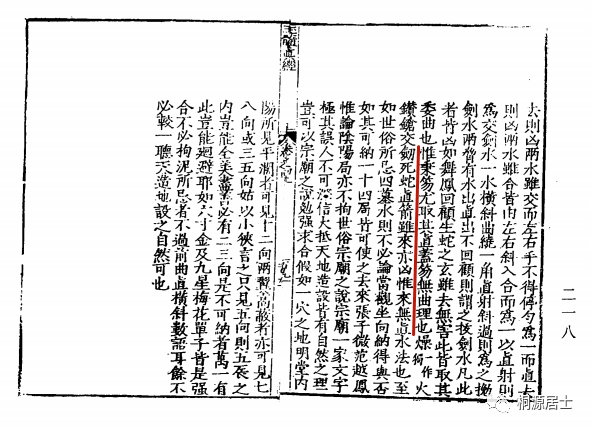 去則凶兩水雖交而左右手不得停勻為一而直去
則凶兩水雖合皆由左右斜入合而為一以直射則
為交劍水一水橫斜曲縫一角直射斜過則為之拗
劍水兩臂有水出直出不回顧則謂之拔劍水凡此
者皆凶如舞鳳回顧生蛇之玄雖去無害此皆取其
委曲也惟乘昜尤取其直蓋昜無曲理也燥一作火
鑽鏡交劒死蛇直箭雖來亦凶惟來無直水法也至
如世俗所忌四墓水則不必論當觀坐向納得與否
如其可納一十四局皆可使之去來張子微范越鳳
惟論陰陽局亦不拘世俗宗廟之說宗廟一家文字
極其誤人不可深信大抵天地造設皆有自然之理
豈可以宗廟之說勉強求合假如一穴之地明堂內
玉髓真經
陽所見平濶者可見十二向兩臂高蔽者亦可見七
八向或三五向姑以小狹言之只見五向則五之
內豈能全美善必有二三向是不可納者萬一有
此豈能迴避耶如穴寸金及九星梅花單子皆是強
合不必拘泥所忌者不過前曲直橫斜數部耳餘不
必較一聽天造地設之自然可也
二一八
桐源居士